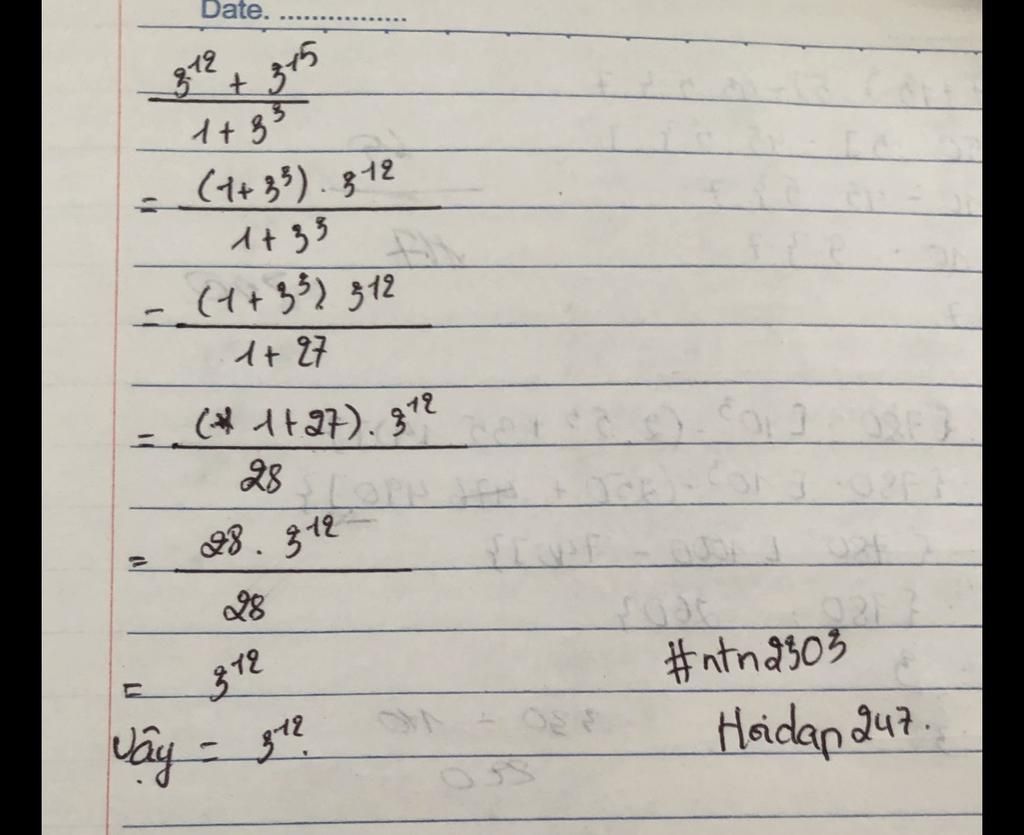 Date. ................
3¹² + 3¹⁵
1 + 3³
= (1 + 3³) . 3¹²
1 + 3³
= (1 + 3³) 3¹²
1 + 27
= ( 1 + 27) . 3¹²
28
= 28 . 3¹²
28
= 3¹²
#ntn2303
Vậy = 3¹².
Hoidap247.